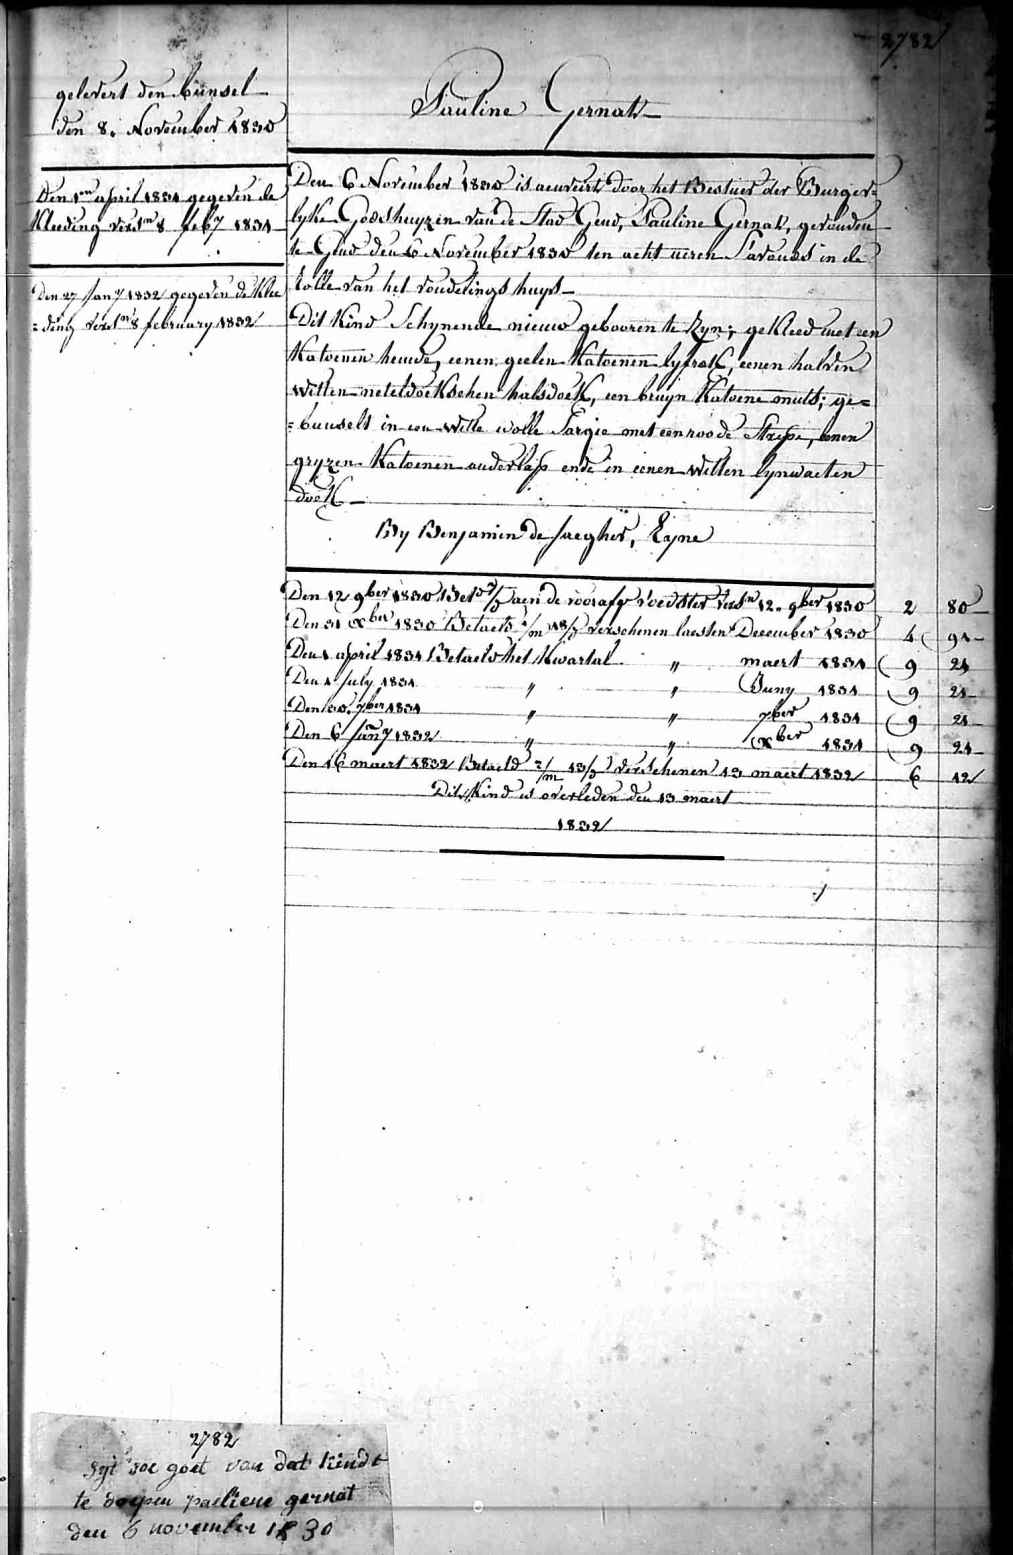 2782
gelevert den bunsel
den 8. November 1830
Den 1en april 1831 gegeven de
Kleeding versn 8 feb7 1831
Den 27 Jan7 1832 gegeven de Klee
=ding versn 8 february 1832
Pauline Gernak
Den 6 November 1830 is aenveirt door het Bestuer der Burger=
lyke Godshuyzen van de Stad Gend, Pauline Gernak, gevonden
te Gend den 6 November 1830 ten acht ueren S'avonds in de
rolle van het vondelings huys
Dit Kind Schynende nieuw gebooren te Zyn; gekleed met een
Katoenen hemde, eenen geelen Katoenen lyfrok, eenen halven
witten neteldoekschen halsdoek, een bruyn Katoene muts; ge=
=bunselt in een witte wolle Sargie met een roode Strepe, eenen
gryzen Katoenen anderlap ende in eenen witten lynwaeten
doek
By Benjamin de Jaegher, Eyne
Den 12 9ber 1830 Bet d 7/3 aen de voorafg voedster versn 12. 9ber 1830 2 80
Den 31 xber 1830 Betaeld 1/m 18/3 verschenen laesten December 1830 4 91
Den 1 april 1831 Betaeld het Kwartal " maert 1831 9 21
Den 1 July 1831 " " Juny 1831 9 21
Den 30. 7ber 1831 " " 7ber 1831 9 21
Den 6 Jan7 1832 " " xber 1831 9 21
Den 16 maert 1832 Betaeld 2/m 13/3 verschenen 13 maert 1832 6 12
Dit Kind is overleden den 13 maert
1832
2782
Syt soe goet van dat kindt
te doopen pauliene gernat
den 6 november 1830